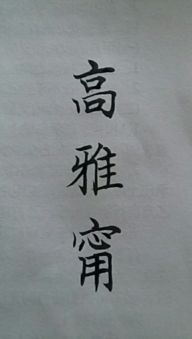 高雅甯